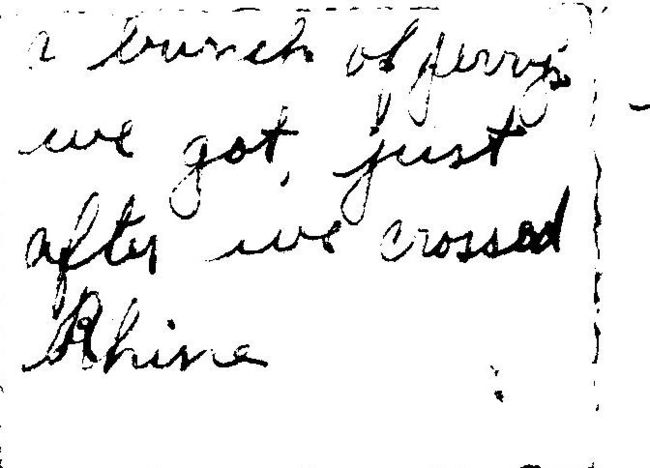 a bunch of jerrys
we got, just
after we crossed
Rhine